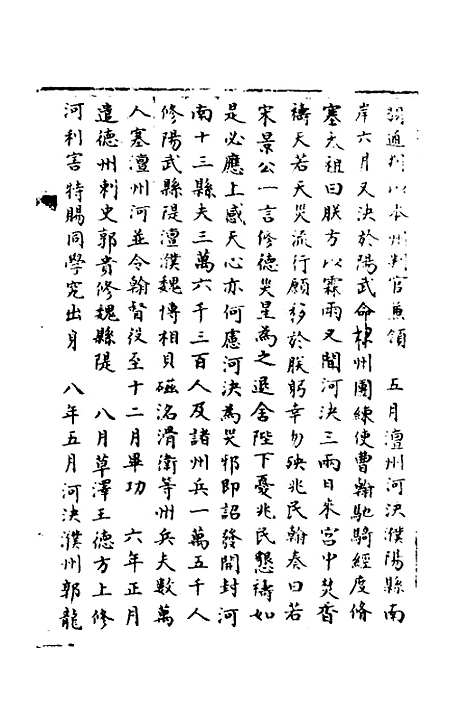 通判以本州判官兼領　五月澶州河決濮陽縣南
岸六月又決於陽武命棣州團練使曹翰馳騎經度脩
塞太祖曰朕方以霖雨又聞河決三兩日來宮中焚香
禱天若天災流行願移於朕躬幸勿殃兆民翰奏曰若
宋景公一言修德災星為之退舍陛下憂兆民懇禱如
是必應上感天心亦何慮河決為災邪即詔發開封河
南十三縣夫三萬六千三百人及諸州兵一萬五千人
修陽武縣隄澶濮魏博相貝磁洺滑衛等州兵夫數萬
人塞澶州河並令翰督役至十二月畢功　六年正月
遣德州刺史郭貴修魏縣隄　八月草澤王德方上修
河利害特賜同學究出身　八年五月河決濮州郭龍